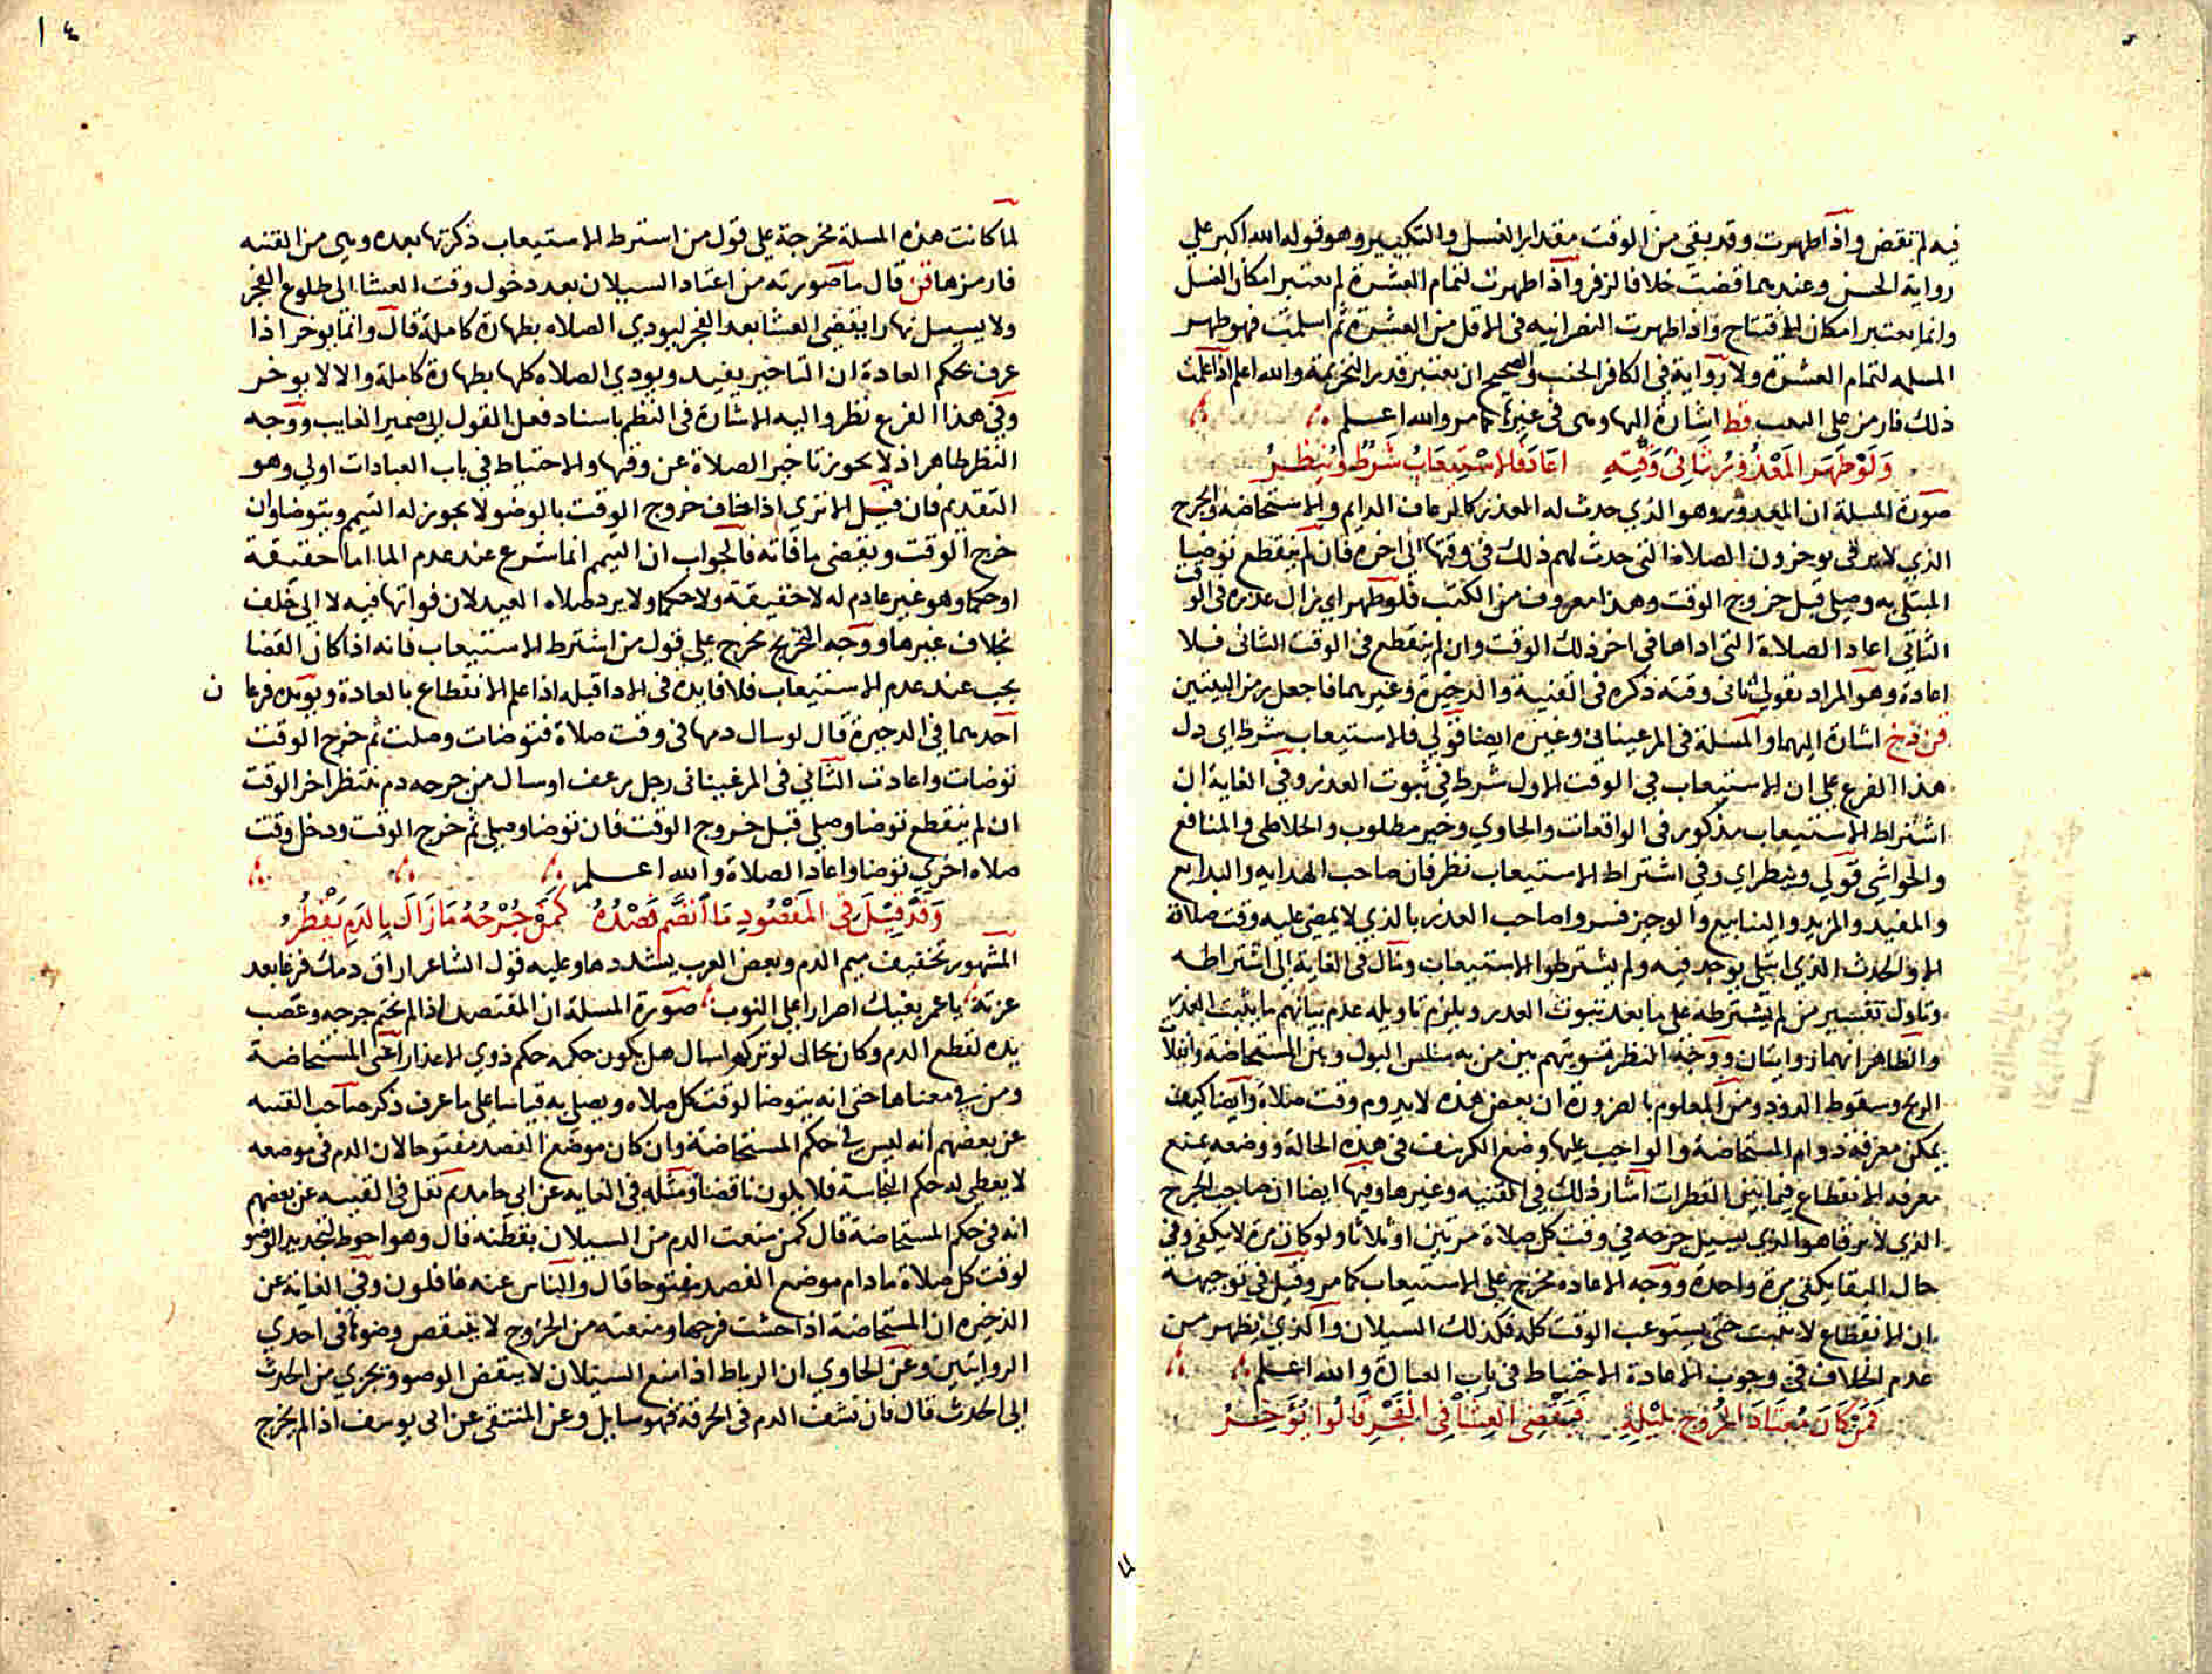 فيه لم تقض واذا طهرت وقد بقي من الوقت مقدار الغسل والتكبير وهو قوله الله اكبر علي
رواية الحسن وعندهما قضت خلافا لزفر واذا طهرت لتمام العشرة لم يعتبر امكان الغسل
وانما يعتبر امكان الافتتاح واذا طهرت النصرانيه في الاقل من العشرة ثم اسلمت فهو طهر
المسلمه لتمام العشرة ولا رواية في الكافر الجنب والصحيح ان يعتبر قدر التحريمة والله اعلم اذا علمت
ذلك فارمز علي اللعب قط اشارة اليها وهي في غيرها كما مر والله اعلم
ولو طهر المعذور ثاني وقته اعاد فالاستيعاب شرط وينظر
صورة المسلة ان المعذور وهو الذي حدث له العذر كالرعاف الدايم والاستحاضة والجرح
الذي لا يرقى يوخرون الصلاة التي حدث لهم ذلك في وقتها الي اخره فان لم ينقطع توضيا
المبتلي به وصلي قبل خروج الوقت وهذا معروف من الكتب فلو طهر اي زال عذره في الوقت
الثاني اعاد الصلاة التي اداها في اخر ذلك الوقت وان لم ينقطع في الوقت الثاني فلا
اعادة وهو المراد بقولي ثاني وقته ذكره في القنية والذخيرة وغيرهما فاجعل رمز البيتين
قن ذخ اشارة اليهما والمسلة في المرغيناني وغيره ايضا قولي فالاستيعاب شرط اي دل
هذا الفرع علي ان الاستيعاب في الوقت الاول شرط في ثبوت العذر وفي الغاية ان
اشتراط الاستيعاب مذكور في الواقعات والحاوي وخير مطلوب والخلاطي والمنافع
والحواشي قولي وينظر اي وفي اشتراط الاستيعاب نظر فان صاحب الهدايه والبدايع
والمفيد والمزيد والينابيع والوجيز فسروا صاحب العذر بالذي لا يمضي عليه وقت صلاة
الا والحدث الذي ابتلي يوجد فيه ولم يشترطوا الاستيعاب ومال في الغاية الي اشتراطه
وتاول تفسير من لم يشترطه علي ما بعد ثبوت العذر ويلزم تاويله عدم بيانهم ما يثبت العذر
والظاهر انهما روايتان ووجه النظر تسويتهم بين من به سلس البول وبين المستحاضة وانفلات
الريح وسقوط الدود ومن المعلوم بالضرورة ان بعض هذه لا يدوم وقت صلاة وايضا كيف
يمكن معرفة دوام المستحاضة والواجب عليها وضع الكرسف في هذه الحالة ووضعه يمنع
معرفه الانقطاع فيما بين القطرات اشار ذلك في القنيه وغيرها وفيها ايضا ان صاحب الجرح
الذي لا يرقا هو الذي يسيل جرحه في وقت كل صلاة مرتين او ثلاثا ولو كان مرة لا يكفي وفي
حال البقا يكفي مرة واحدة ووجه الاعاده مخرج علي الاستيعاب كما مر وقيل في توجيهه
ان الانقطاع لا يثبت حتى يستوعب الوقت كله فكذلك السيلان والذي يظهر من
عدم الخلاف في وجوب الاعادة الاحتياط في باب العبادة والله اعلم
فمن كان معتاد الخروج بليلة فيقضي العشا في الفجر قالوا يؤخر
لما كانت هذه المسلة مخرجة علي قول من اشترط الاستيعاب ذكرتها بعده وهي من القنيه
فارمزها قن قال ما صورته من اعتاد السيلان بعد دخول وقت العشا الى طلوع الفجر
ولا يسيل نهارا يقضي العشا بعد الفجر ليودي الصلاه بطهارة كاملة قال وانما يوخر اذا
عرف بحكم العادة ان التاخير يفيد ويودي الصلاه كلها بطهارة كاملة والا لا يوخر
وفي هذا الفرع نظر واليه الاشارة في النظم باسناد فعل القول الي ضمير الغايب ووجه
النظر ظاهر اذ لا يجوز تاخير الصلاة عن وقتها والاحتياط في باب العبادات اولي وهو
التقديم فان قيل الا تري اذا خاف خروج الوقت بالوضو لا يجوز له التيمم ويتوضا وان
خرج الوقت ويقضي ما فاته فالجواب ان التيمم انما شرع عند عدم الما اما حقيقة
او حكما وهو غير عادم له لا حقيقة ولا حكما ولا يرد صلاه العيد لان فواتها فيه لا الي خلف
بخلاف غيرها ووجه التخريج مخرج علي قول من اشترط الاستيعاب فانه اذا كان القضا
يجب عند عدم الاستيعاب فلا فايده في الادا قبله اذا علم الانقطاع بالعادة ويويده فرعا ن
احدهما في الذخيرة قال لو سال دمها في وقت صلاة فتوضات وصلت ثم خرج الوقت
توضات واعادت الثاني في المرغيناني رجل رعف او سال من جرحه دم ينتظر اخر الوقت
ان لم ينقطع توضا وصلي قبل خروج الوقت فان توضا وصلي ثم خرج الوقت ودخل وقت
صلاه اخري توضا واعاد الصلاة والله اعلم
وقد قيل في المفصود ما انضم فصده كمن جرحه ما زال بالدم يقطر
المشهور تخفيف ميم الدم وبعض العرب يشددها وعليه قول الشاعر اراق دمك فرغا بعد
عزته يا عمر بغيك اصرارا علي الحوب صورة المسلة ان المفتصد اذا لم يختم جرحه وعصب
يده لقطع الدم وكان بحال لو تركه لسال هل يكون حكمه حكم ذوي الاعذار اعني المستحاضة
ومن في معناها حتى انه يتوضا لوقت كل صلاه ويصلي به قياسا علي ما عرف ذكر صاحب القنيه
عن بعضهم انه ليس في حكم المستحاضة وان كان موضع الفصد مفتوحا لان الدم في موضعه
لا يعطي له حكم النجاسة فلا يكون ناقضا ومثله في الغايه عن ابي حامد ثم نقل في القنيه عن بعضهم
انه في حكم المستحاضة قال كمن منعت الدم من السيلان بقطنه قال وهو احوط لتجديد الوضو
لوقت كل صلاة ما دام موضع الفصد مفتوحا قال والناس عنه غافلون وفي الغاية عن
الذخيره ان المستحاضة اذا حشت فرجها ومنعته من الخروج لا ينتقض وضوئها في احدي
الروايتين وعن الحاوي ان الرباط اذا منع السيلان لا ينقض الوضو وتجزي من الحدث
الي الحدث قال فان نشف الدم في الخرقة فهو سايل وعن المنتقي عن ابي يوسف اذا لم يخرج